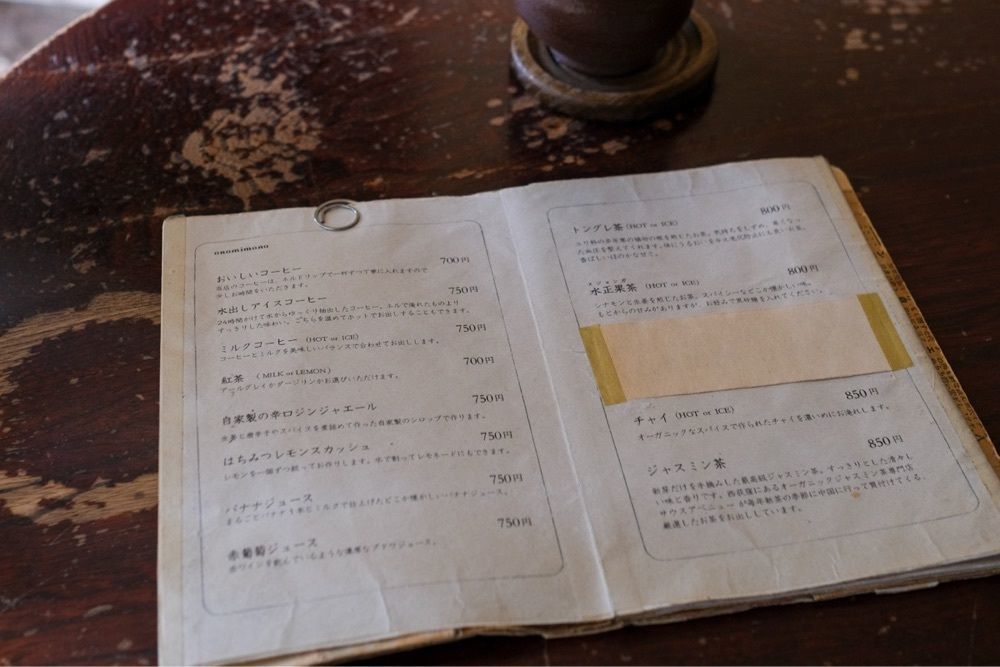 onomimono
おいしいコーヒー 700円
当店のコーヒーは、ネルドリップで一杯ずつ丁寧に入れますので
少しお時間をいただきます。
水出しアイスコーヒー 750円
24時間かけて水からゆっくり抽出したコーヒー。ネルで淹れたものより
すっきりした味わい。こちらを温めてホットでお出しすることもできます。
ミルクコーヒー (HOT or ICE) 750円
コーヒーとミルクを美味しいバランスで合わせてお出しします。
紅茶 (MILK or LEMON) 700円
アールグレイかダージリンかお選びいただけます。
自家製の辛口ジンジャエール 750円
生姜と唐辛子やスパイスを煮詰めて作った自家製のシロップで作ります。
はちみつレモンスカッシュ 750円
レモンを一個ずつ絞ってお作りします。水で割ってレモネードにもできます。
バナナジュース 750円
まるごとバナナ1本とミルクで仕上げたどこか懐かしいバナナジュース。
赤葡萄ジュース 750円
赤ワインを飲んでいるような濃厚なブドウジュース。
トングレ茶 (HOT or ICE) 800円
ユリ科の多年草の根を煎じたお茶。気持ちをしずめ、高くなっ
た血圧を整えてくれます。体にうるおいを与え老化防止にも良いお茶。
香ばしいほのかな甘さ。
スジョンガ
水正果茶 (HOT or ICE) 800円
シナモンと生姜を煎じたお茶。スパイシーなどこか懐かしい味。
もとからの甘みがありますが、お好みで黒砂糖を入れてください。
チャイ (HOT or ICE) 850円
オーガニックなスパイスで作られたチャイを濃いめにお淹れします。
ジャスミン茶 850円
新芽だけを手摘みした最高級ジャスミン茶。すっきりとした清々し
い味と香りです。西荻窪にあるオーガニックジャスミン茶専門店
サウスアベニュー が毎年新茶の季節に中国に行って買付けてくる、
厳選したお茶をお出ししています。